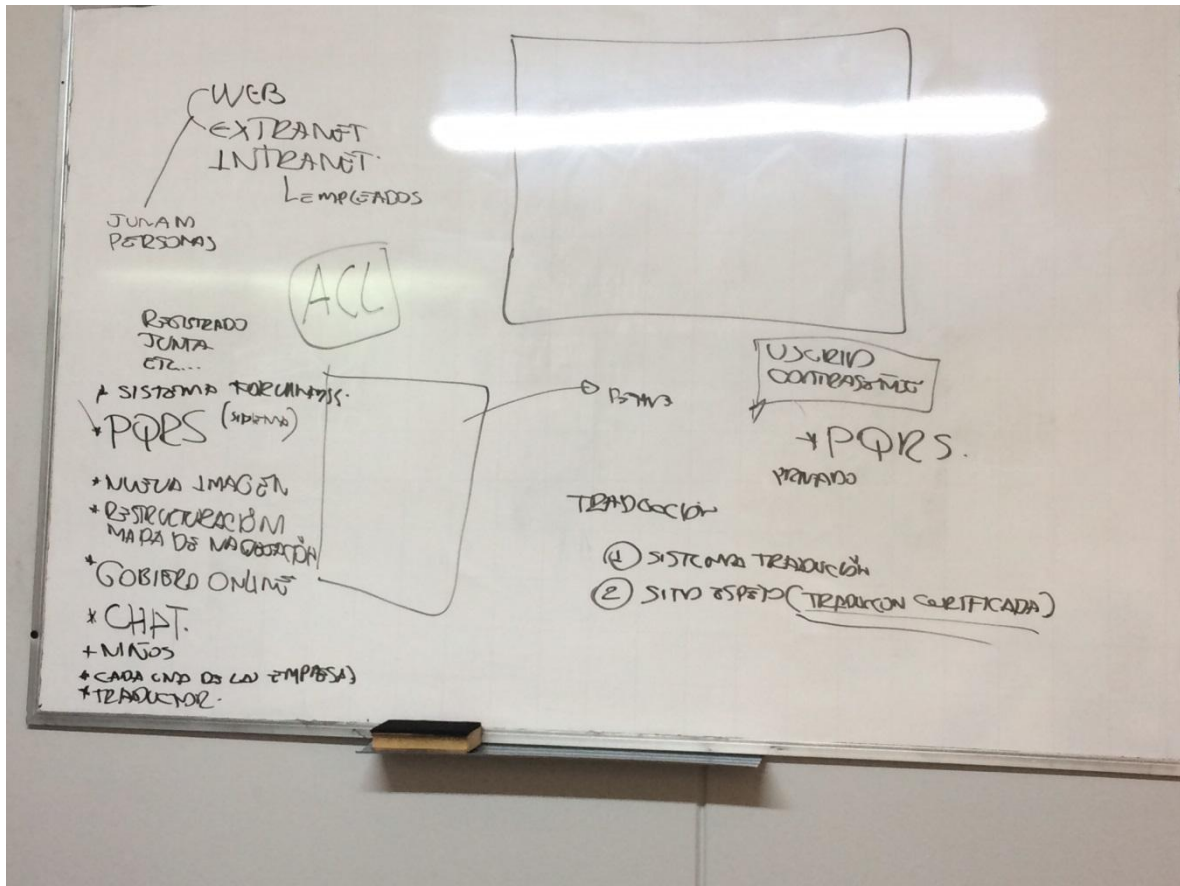 WEB
EXTRANET
INTRANET.
EMPLEADOS
PERSONAS
ACL
REGISTRADO
JUNTA
ETC...
* SISTEMA
* PQRS (SISTEMA)
* NUEVA IMAGEN
* RESTRUCTURACIÓN
MAPA DE NAVEGACIÓN
* GOBIERO ONLINE
* CHAT.
+ NIÑOS
* CADA UNO DE LAS EMPRESAS
* TRADUCTOR.
USERID
CONTRASEÑA
* PQRS.
PRIVADO
TRADUCCIÓN
1 SISTEMA TRADUCCIÓN
2 SITIO ESPEJO (TRADUCION CERTIFICADA)